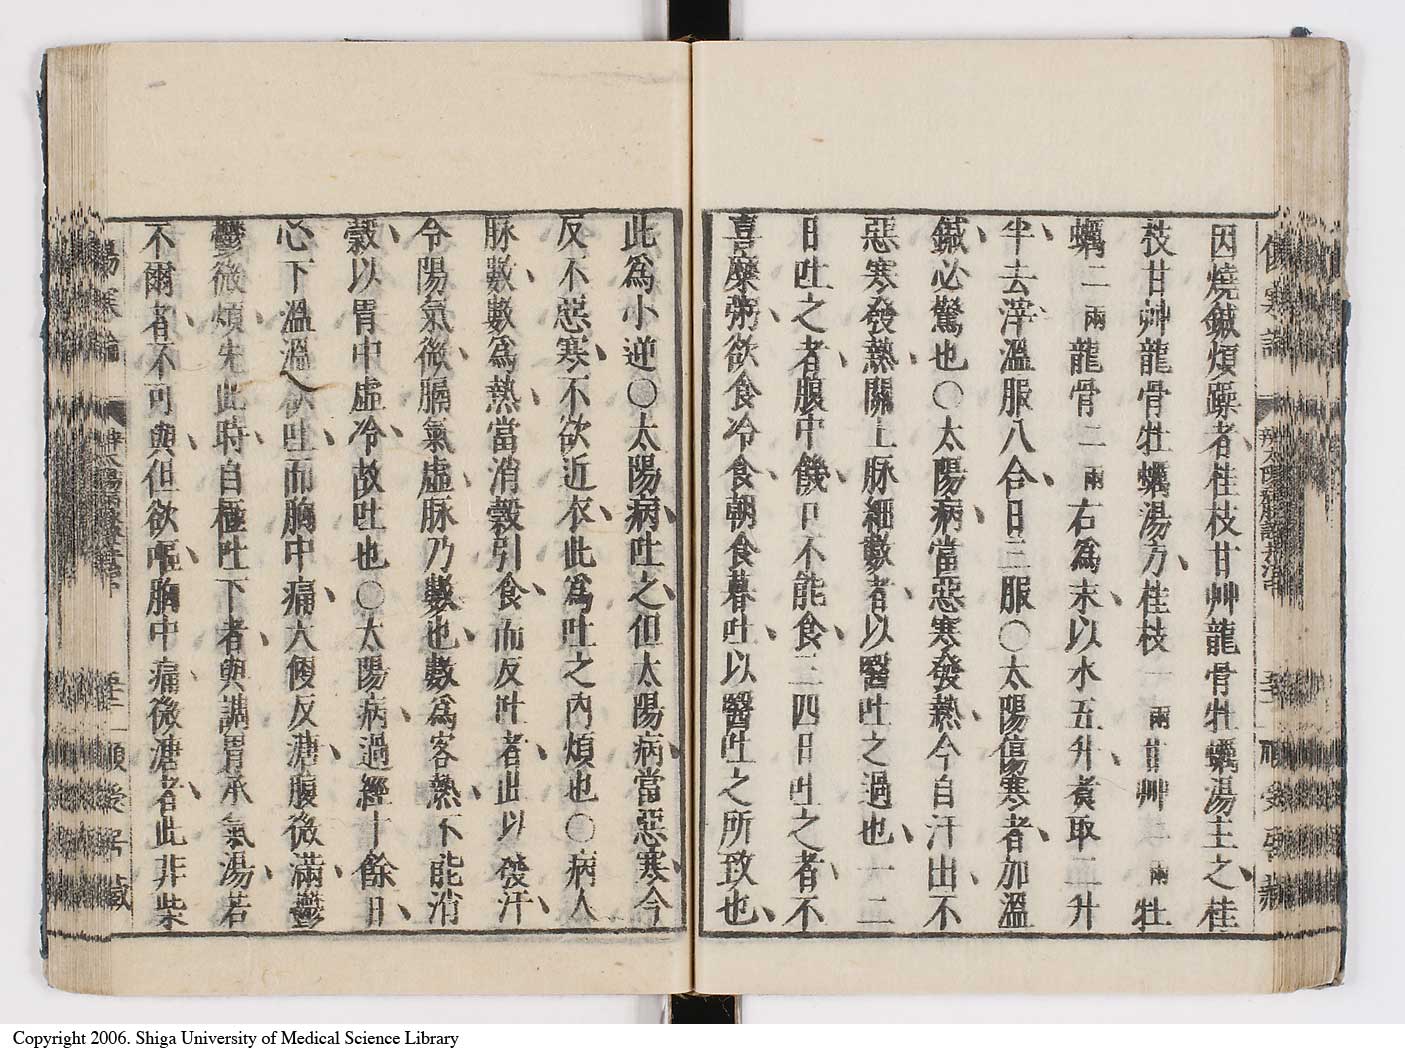 因燒鍼煩躁者桂枝甘艸龍骨牡蠣湯主之桂
枝甘艸龍骨牡蠣湯方桂枝一兩甘艸二兩牡
蠣二兩龍骨二兩右爲末以水五升煑取二升
半去滓溫服八合日三服○太陽傷寒者加溫
鍼必驚也○太陽病當惡寒發熱今自汗出不
惡寒發熱關上脉細數者以醫吐之過也一二
日吐之者腹中饑口不能食三四日吐之者不
喜糜粥欲食冷食朝食暮吐以醫吐之所致也
此爲小逆○太陽病吐之但太陽病當惡寒今
反不惡寒不欲近衣此爲吐之內煩也○病人
脉數數爲熱當消穀引食而反吐者此以發汗
令陽氣微膈氣虛脉乃數也數爲客熱不能消
穀以胃中虛冷故吐也○太陽病過經十餘日
心下溫溫欲吐而胸中痛大便反溏腹微滿鬱
鬱微煩先此時自極吐下者與調胃承氣湯若
不爾者不可與但欲嘔胸中痛微溏者此非柴
傷寒論
Copyright 2006. Shiga University of Medical Science Library